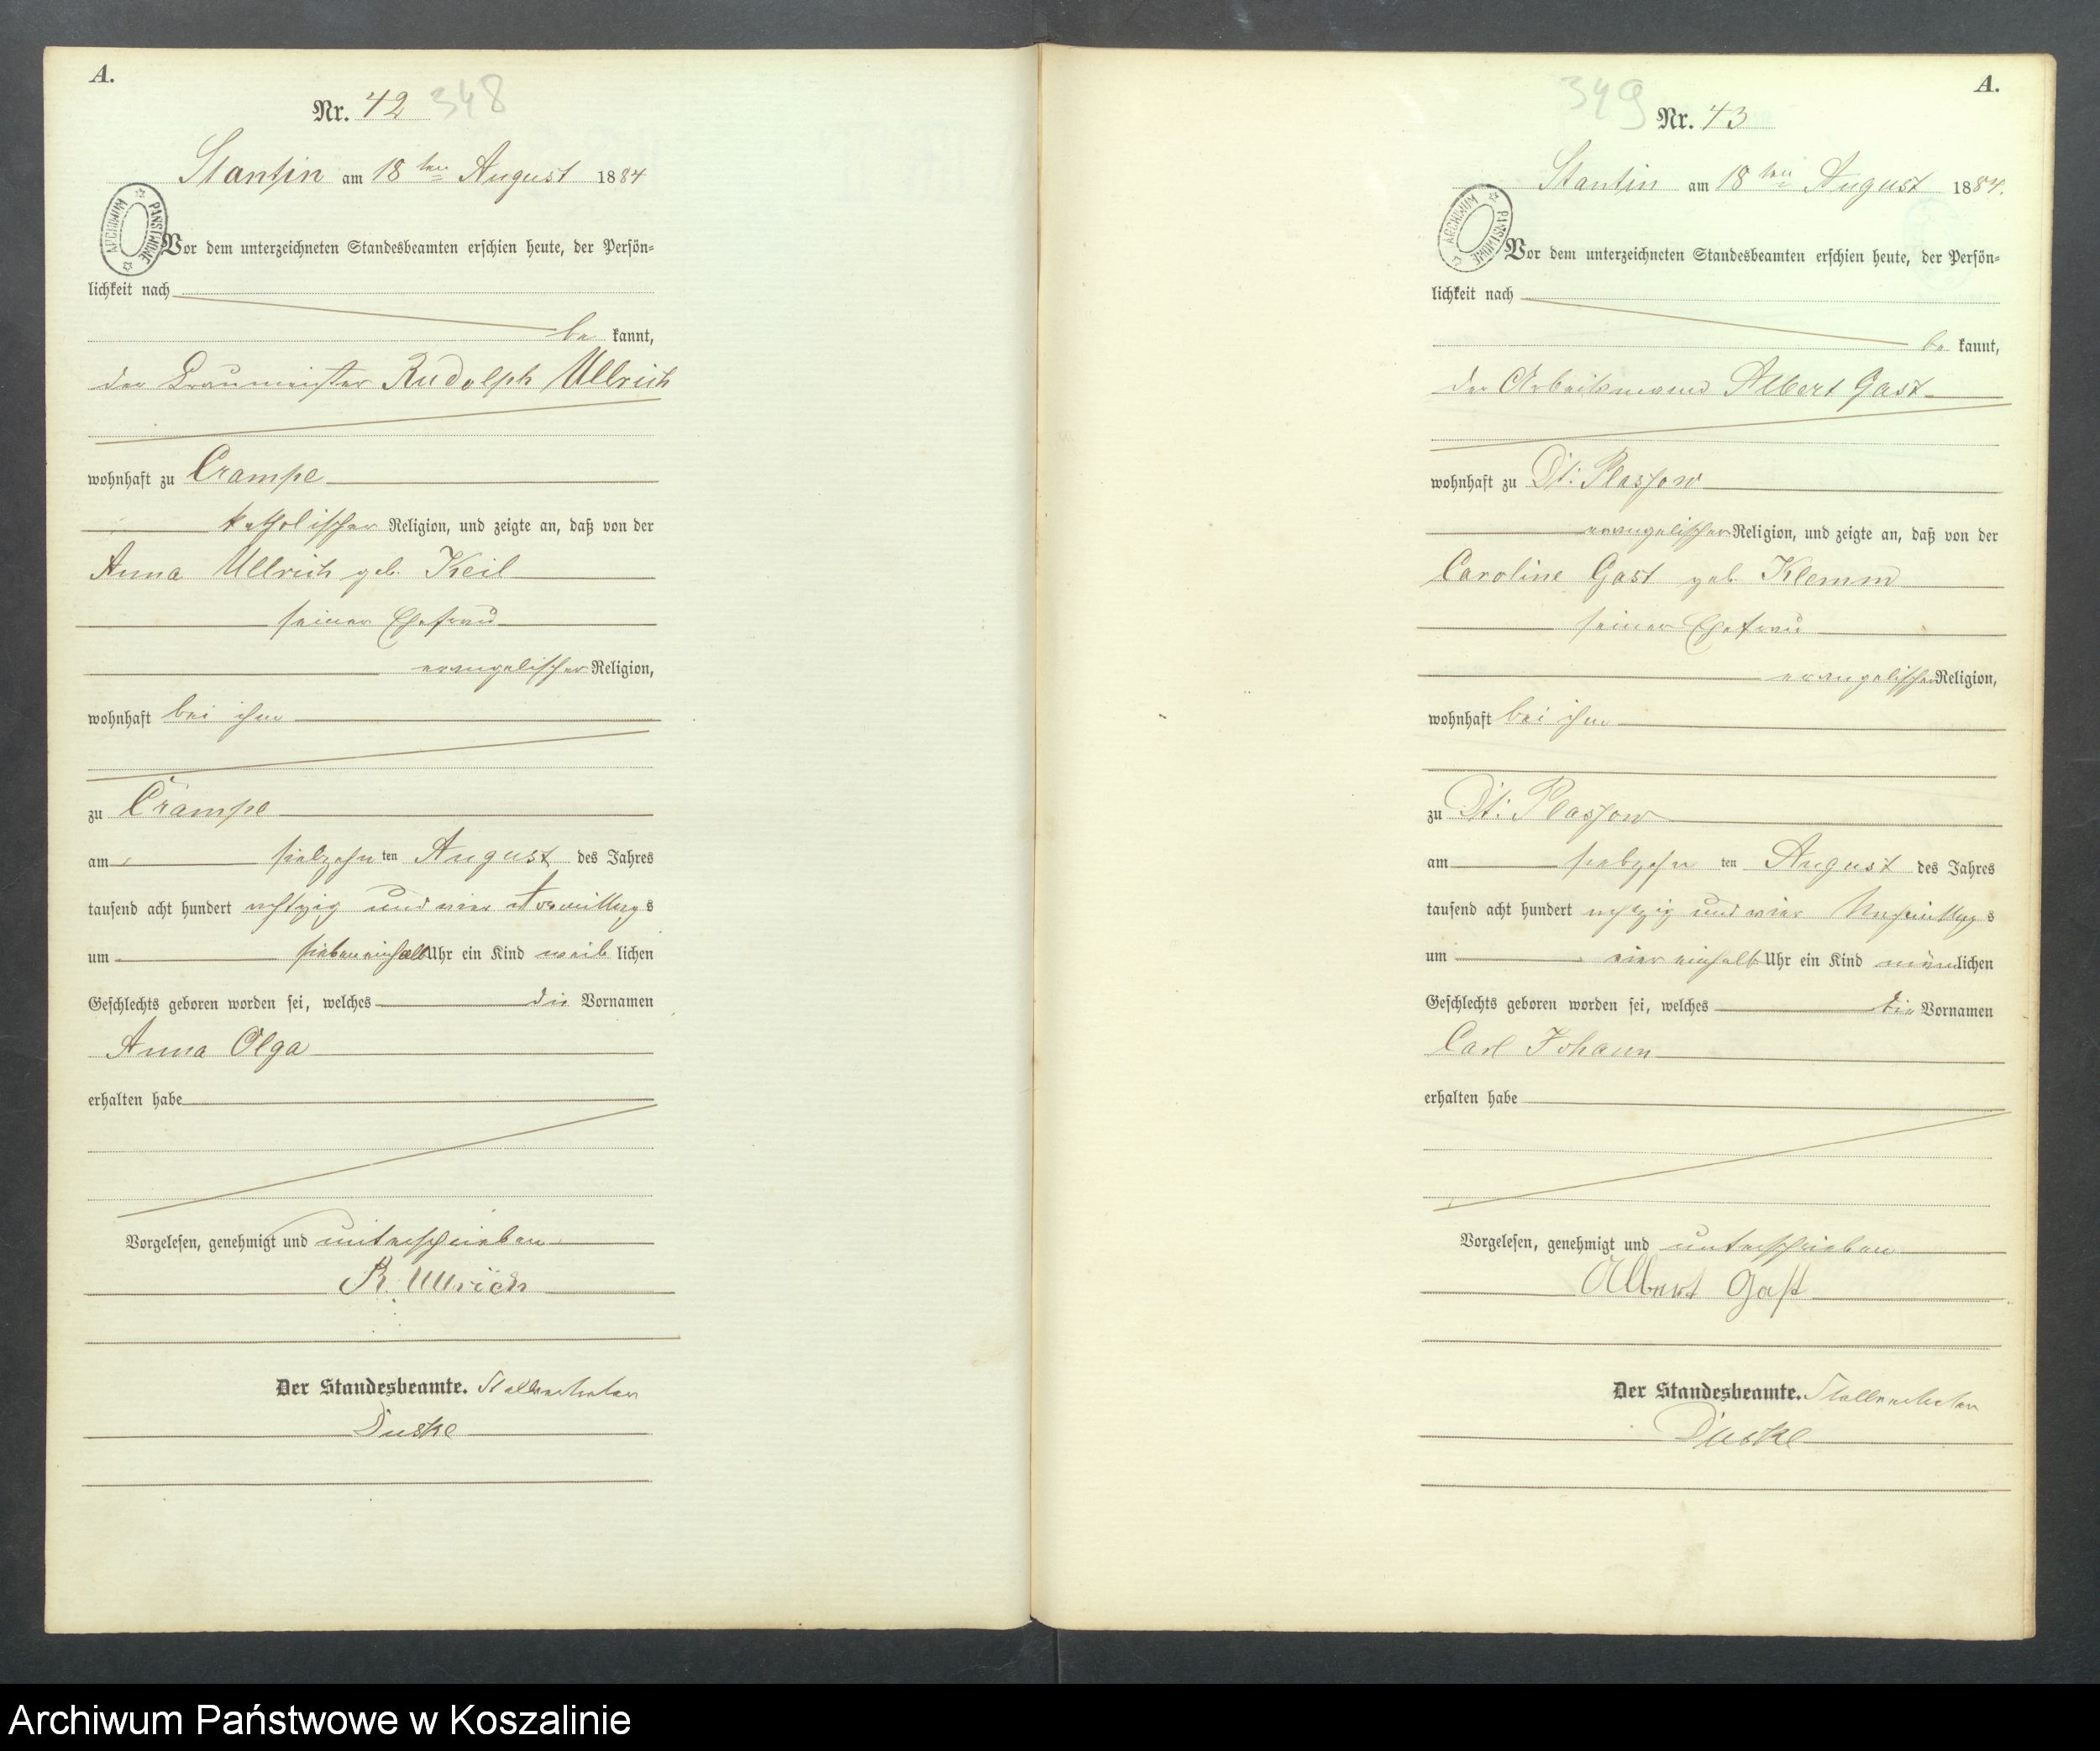 A.
Nr. 42 348
Stantin am 18ten August 1884
ARCHIWUM PAŃSTWOWE
Vor dem unterzeichneten Standesbeamten erschien heute, der Persön-
lichkeit nach
be kannt,
der Braumeister Rudolph Ullrich
wohnhaft zu Crampe
katholischer Religion, und zeigte an, daß von der
Anna Ullrich geb. Keil
seiner Ehefrau
evangelischer Religion,
wohnhaft bei ihm
zu Crampe
am siebzehn ten August des Jahres
tausend acht hundert achtzig und vier Vormittag s
um sieben einhalb Uhr ein Kind weib lichen
Geschlechts geboren worden sei, welches die Vornamen
Anna Olga
erhalten habe
Vorgelesen, genehmigt und unterschrieben
R. Ullrich
Der Standesbeamte. Stellvertreter
Duske
A.
349 Nr. 43
Stantin am 18ten August 1884.
ARCHIWUM PAŃSTWOWE
Vor dem unterzeichneten Standesbeamten erschien heute, der Persön-
lichkeit nach
be kannt,
der Arbeitsmann Albert Gast
wohnhaft zu Dt: Plassow
evangelischer Religion, und zeigte an, daß von der
Caroline Gast geb. Klemm
seiner Ehefrau
evangelischer Religion,
wohnhaft bei ihm
zu Dt: Plassow
am siebzehn ten August des Jahres
tausend acht hundert achtzig und vier Nachmittag s
um vier einhalb Uhr ein Kind männlichen
Geschlechts geboren worden sei, welches die Vornamen
Carl Johann
erhalten habe
Vorgelesen, genehmigt und unterschrieben
Albert Gast
Der Standesbeamte. Stellvertreter
Duske
Archiwum Państwowe w Koszalinie